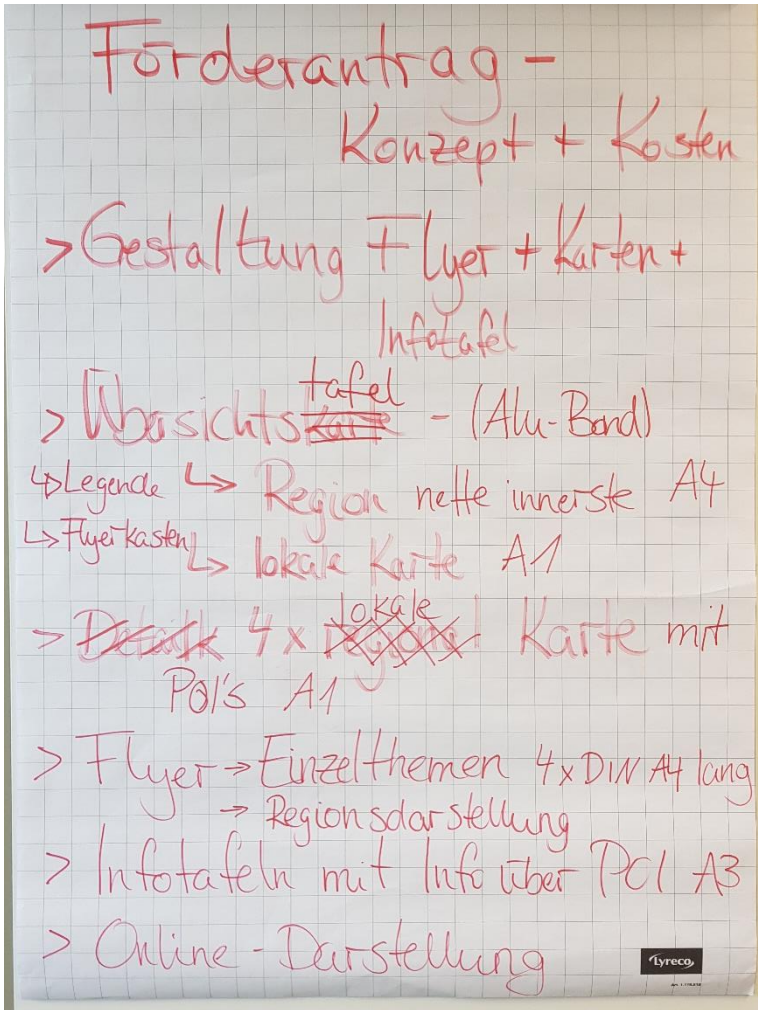 Förderantrag -
Konzept + Kosten
> Gestaltung Flyer + Karten +
Infotafel
tafel
> Übersichts - (Alu-Bond)
↳ Legende ↳ Region nette innerste A4
↳ Flyerkasten ↳ lokale Karte A1
lokale
> 4 x Karte mit
POI's A1
> Flyer → Einzelthemen 4 x DIN A4 lang
→ Regionsdarstellung
> Infotafeln mit Info über POI A3
> Online - Darstellung
Lyreco